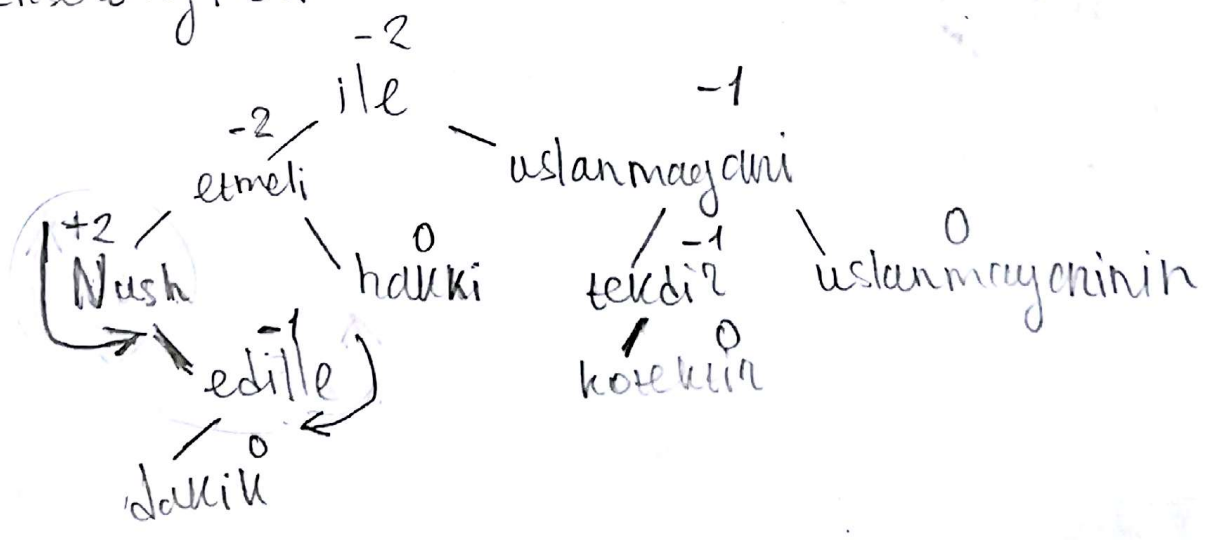 -2
ile
-1
-2
etmeli
uslanmayani
+2
Nush
0
hakki
-1
tekdir
0
uslanmayaninin
-1
edille
0
kotektir
0
dakik